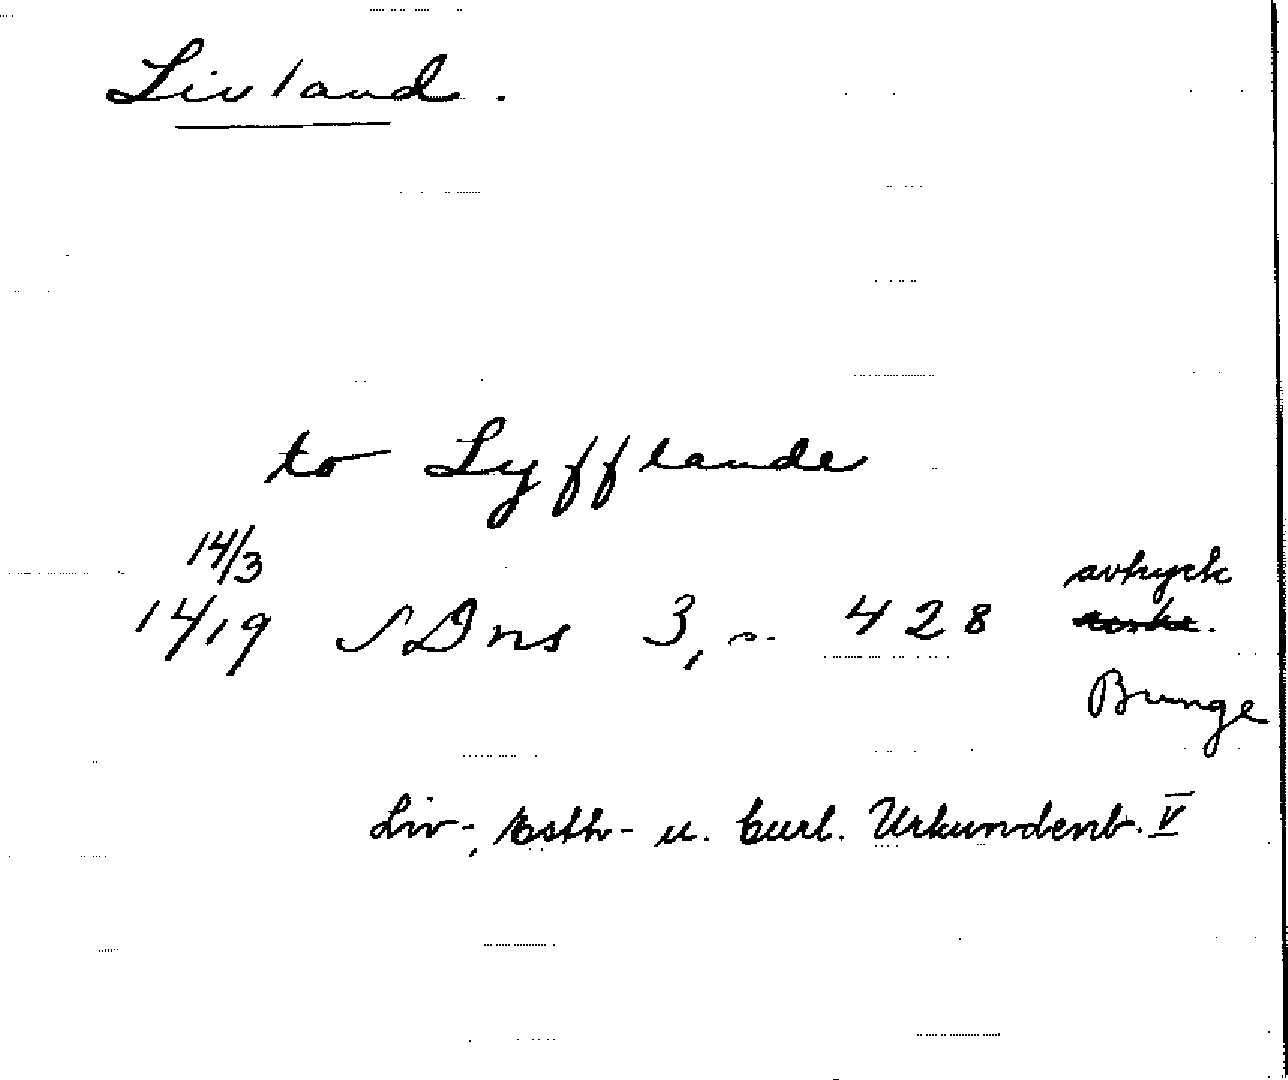 Livland.
to Lyfflande
14/3
1419 SDns 3, n. 428 avtryck
Bunge
Liv-, Esth- u. Curl. Urkundenb. V